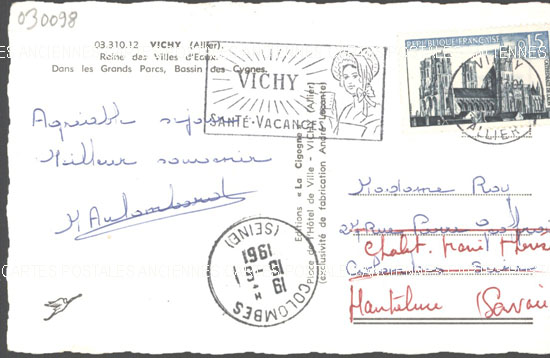 030098
03.310.12 VICHY (Allier)
Reine des Villes d'Eaux
Dans les Grands Parcs, Bassin des Cygnes.
VICHY
SANTÉ-VACANCES
REPUBLIQUE FRANÇAISE 15
VICHY
ALLIER
Agréable séjour
Meilleur souvenir
Editions « La Cigogne »
Place de l'Hôtel de Ville - VICHY (Allier)
(exclusivité de fabrication André Leconte)
COLOMBES
19
1961
(SEINE)
Madame Roy
27 Rue Pierre
Chalet
Colombes Seine
Hauteluce (Savoie
CARTES POSTALES ANCIENNES